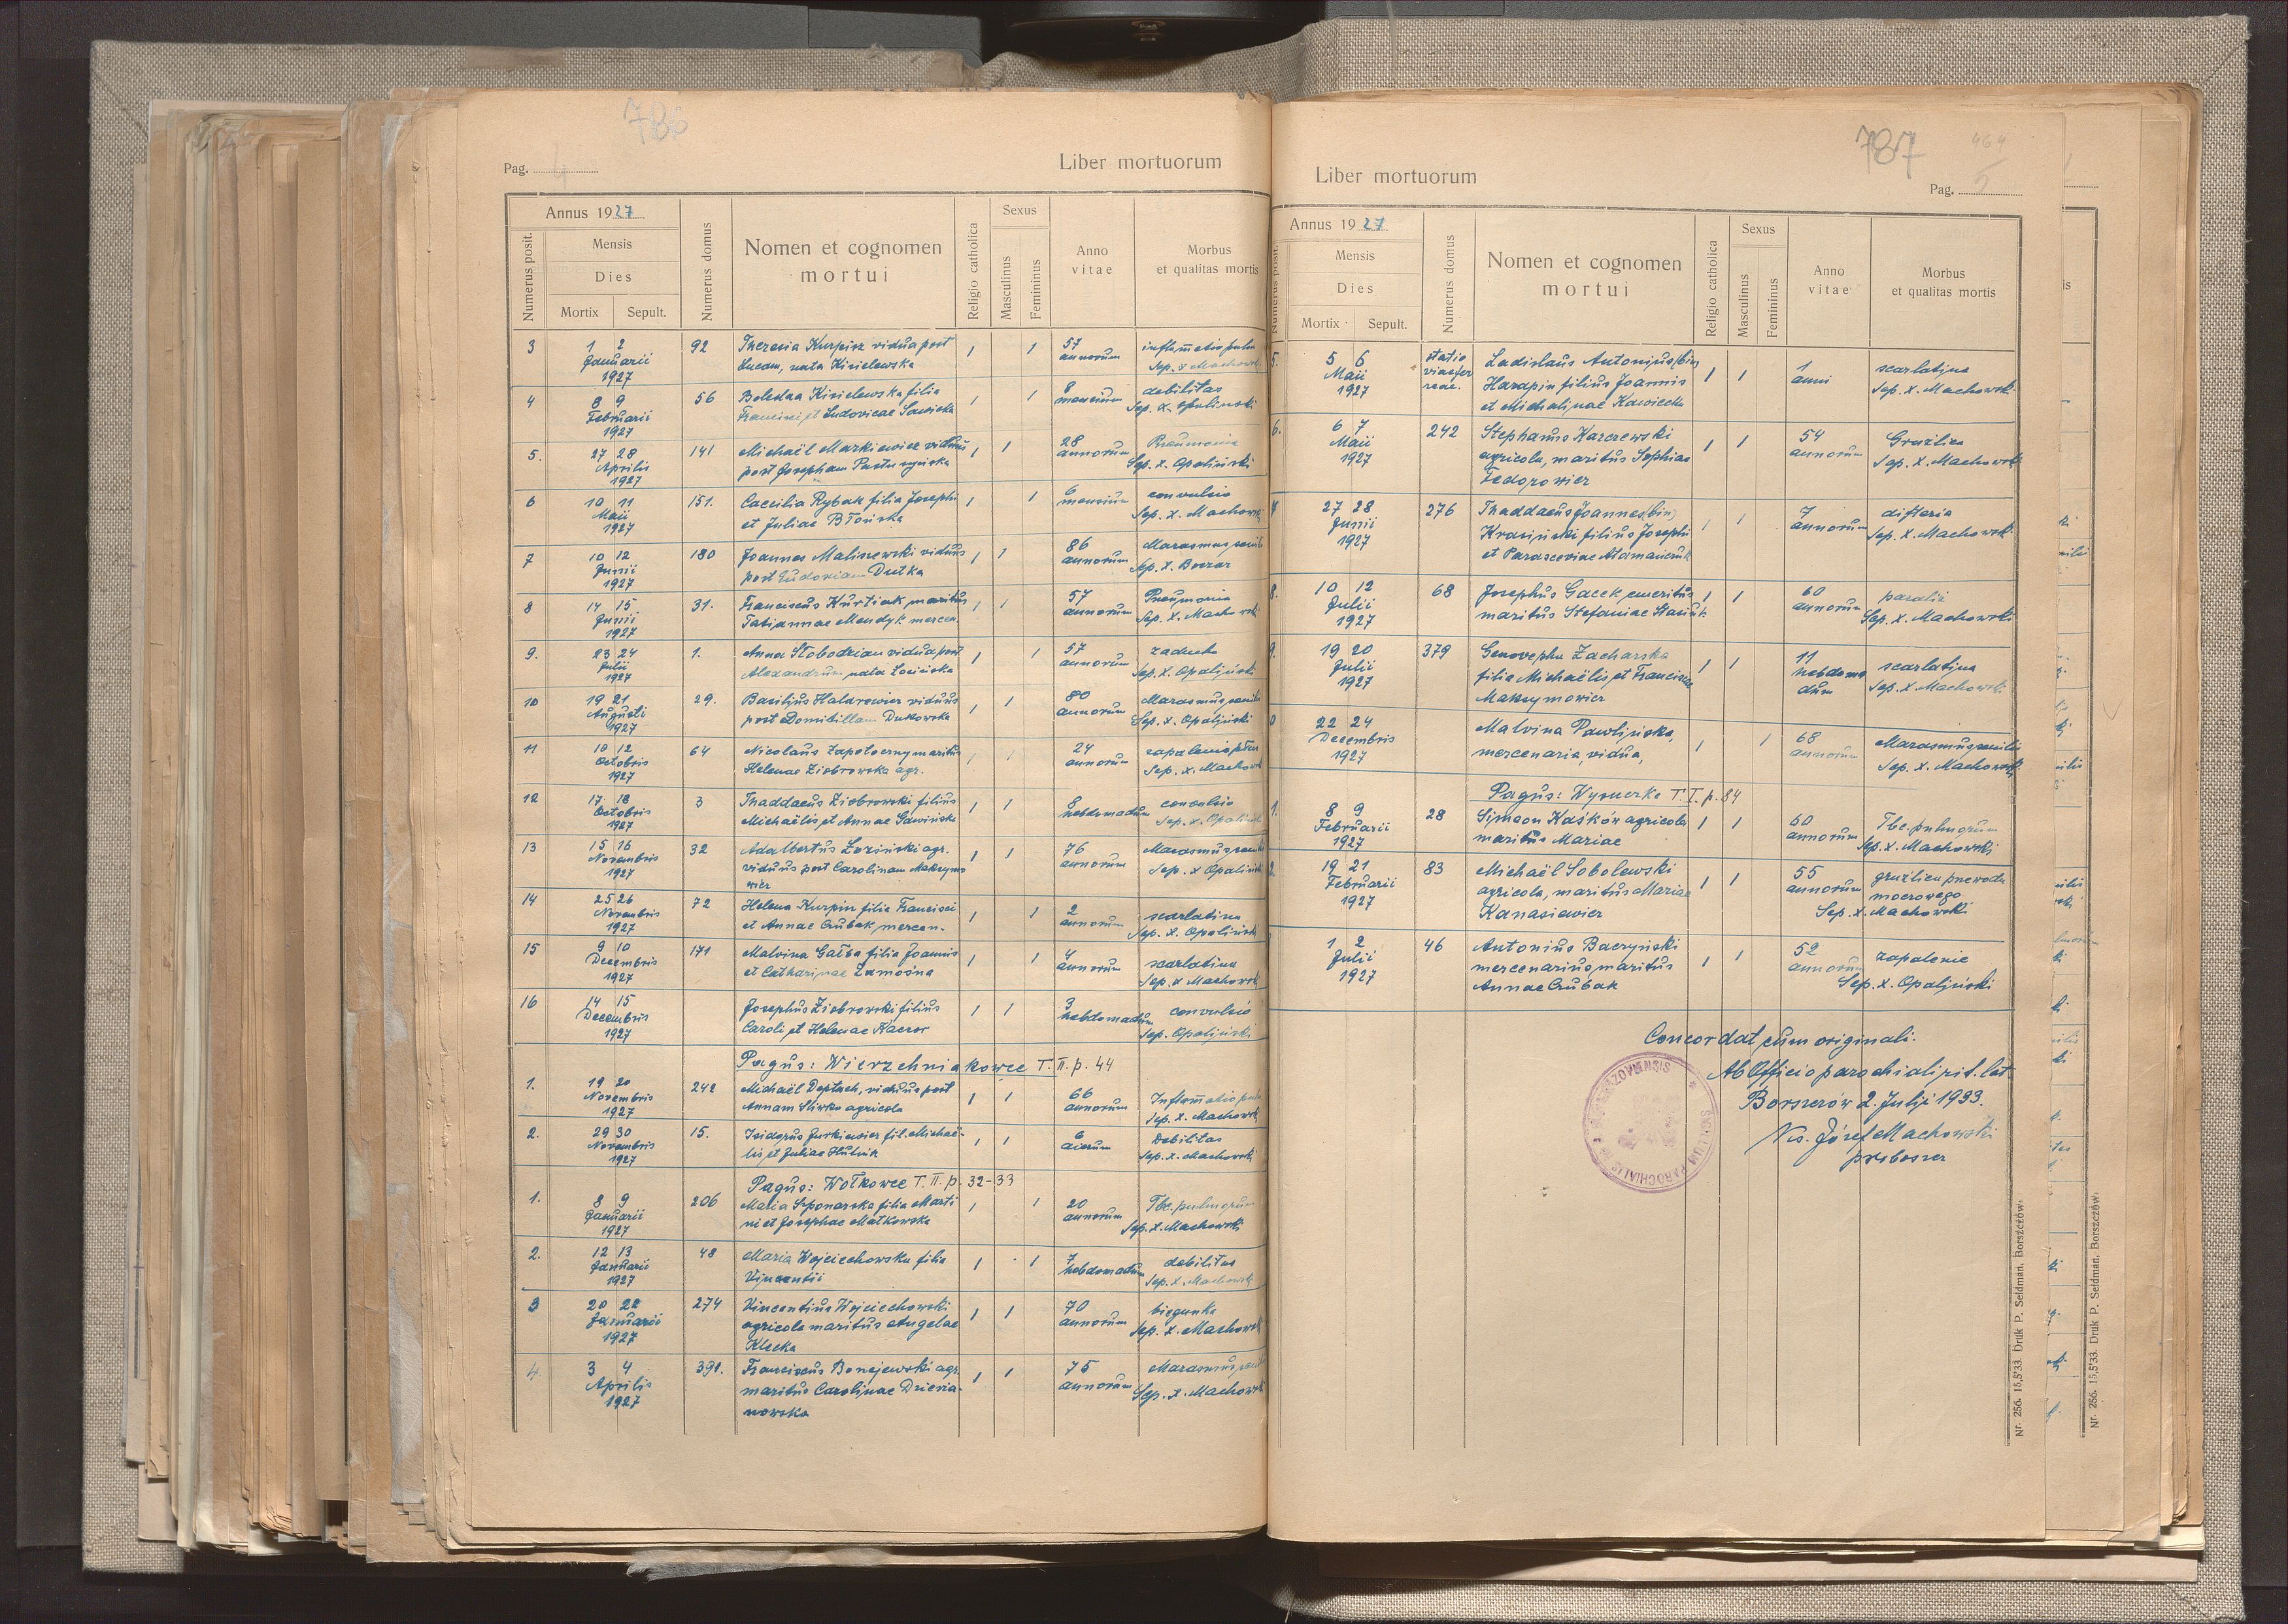 786
Pag. 4
Liber mortuorum
Annus 1927
Numerus posit.
Mensis
Dies
Mortix Sepult.
Numerus domus
Nomen et cognomen
mortui
Religio catholica
Sexus
Masculinus
Femininus
Anno
vitae
Morbus
et qualitas mortis
3 1 2 92 Theresia Kurpisz vidua post 1 1 57
Januarii Lucam, nata Kisielewska annorum Sep. x Machowsk
1927
4 8 9 56 Kisielewska filia 1 1 8 debilitas
Februarii Francisci et Ludovicae Sawicka mensium Sep. x. Opaliński
1927
5. 27 28 141 Michaël Markiewicz viduus 1 1 28 Pneumonia
Aprilis post Josepham annorum Sep. x. Opaliński
1927
6 10 11 151. Caecilia Rybak filia Josephi 1 1 6 convulsio
Maii et Juliae Błońska mensium Sep. x. Machowsk
1927
7 10 12 180 Joannes Maliszewski viduus 1 1 86 Marasmus senil
Junii post Ludoviam Dutka annorum Sep. x.
1927
8 14 15 31. Franciscus Kurtiak maritus 1 1 57 Pneumonia
Junii Tatiannae Mendyk mercen. annorum Sep. x. Machowski
1927
9. 23 24 1. Anna Słobodzian vidua post 1 1 57
Julii Alexandrum nata annorum Sep. x. Opaliński
1927
10 19 21 29. Basilius viduus 1 1 80 Marasmus senilis
Augusti post Domicillam Dutkowska annorum Sep. x. Opaliński
1927
11 10 12 64 Nicolaus Zapotoczny maritus 1 1 24 zapalenie płuc
Octobris Helenae Ziobrowska agr. annorum Sep. x. Machowsk
1927
12 17 18 3 Thaddaeus Ziobrowski filius 1 1 8 convulsio
Octobris Michaëlis et Annae Gawińska hebdomadum Sep. x. Opaliński
1927
13 15 16 32 Adalbertus Łoziński agr. 1 1 76 Marasmus senil
Novembris viduus post Carolinam Maksymo annorum Sep. x Opaliński
1927 wicz
14 25 26 72 Helena Kurpisz filia Francisci 1 1 2 scarlatina
Novembris et Annae Czubak, mercen. annorum Sep. x. Opaliński
1927
15 9 10 171 Malvina Gałba filia Joannis 1 1 4 scarlatina
Decembris et Catharinae Zamośna annorum Sep. x Machowsk
1927
16 14 15 Josephus Ziobrowski filius 1 1 3 convulsio
Decembris Caroli et Helenae Kaczor hebdomadum Sep. Opaliński
1927
Pagus: Wierzchniakowce T. II. p. 44
1. 19 20 242 Michaël Deptuch, viduus post 1 1 66
Novembris Annam Śliwka agricola annorum Sep. x. Machowsk
1927
2. 29 30 15. Isidorus Jurkiewicz fil. Michaë- 1 1 6 Debilitas
Novembris lis et Juliae Hutnik dierum Sep. x. Machowski
1927
Pagus: Wołkowce T. II. p. 32-33
1. 8 9 206 Maria Seponarska filia Marti 1 1 20 Tbc. pulmonum
Januarii ni et Josephae Małkowska annorum Sep. x. Machowski
1927
2. 12 13 48 Maria Wojciechowska filia 1 1 7 debilitas
Januarii Vincentii hebdomadum Sep. x. Machowsk
1927
3 20 22 274 Vincentius Wojciechowski 1 1 70 biegunka
Januarii agricola maritus Angelae annorum Sep. x. Machowsk
1927 Klecka
4. 3 4 391. Franciscus Bonejewski agr. 1 1 75 Marasmus
Aprilis maritus Carolinae Dziesia- annorum Sep. x. Machowsk
1927 nowska
787
464
Liber mortuorum
Pag. 5
Annus 1927
Numerus posit.
Mensis
Dies
Mortix Sepult.
Numerus domus
Nomen et cognomen
mortui
Religio catholica
Sexus
Masculinus
Femininus
Anno
vitae
Morbus
et qualitas mortis
5. 5 6 statio Ladislaus Antonius (bin) 1 1 1 scarlatina
Maii viae fer Harapin filius Joannis anni Sep. x. Machowski
1927 reae. et Michalinae Kawecka
6. 6 7 242 Stephanus Karczewski 1 1 54 Gruźlica
Maii agricola, maritus Sophiae annorum Sep. x. Machowsk
1927 Fedorowicz
7 27 28 276 Thaddaeus Joannes (bin) 1 1 7 difteria
Junii Krasiński filius Josephi annorum Sep. x. Machowski
1927 et Parasceviae Atamańczuk
8. 10 12 68 Josephus Gacek emeritus 1 1 60 paraliż
Julii maritus Stefaniae Stasiuk annorum Sep. x. Machowski
1927
9. 19 20 379 Genovepha Zacharska 1 1 11 scarlatina
Julii filia Michaëlis et Franciscae hebdoma Sep. x. Machowsk
1927 Maksymowicz dum
0 22 24 Malvina Pawlińska, 1 1 68 Marasmus senilis
Decembris mercenaria, vidua, annorum Sep. x. Machowsk
1927
Pagus: Wysuczka T. I. p. 84
1. 8 9 28 Simeon Kaśków agricola 1 1 60 Tbc. pulmonum
Februarii maritus Mariae annorum Sep. x. Machowski
1927
2. 19 21 83 Michaël Sobolewski 1 1 55 gruźlica przewodu
Februarii agricola, maritus Mariae annorum moczowego
1927 Kanasiewicz Sep. x. Machowski
1 2 46 Antonius Baczyński 1 1 52 zapalenie
Julii mercenarius, maritus annorum Sep. x. Opaliński
1927 Annae Czubak
Concordat cum originali.
Ab Officio parochiali rit. lat.
Borszczów 2. Julji 1933.
Ks. Józef Machowski
proboszcz
SIGILLUM PAROCHIALIS
Nr. 256. 15,5'33. Druk P. Seldman, Borszczów.
Nr. 256. 15,5'33. Druk P. Seldman, Borszczów.